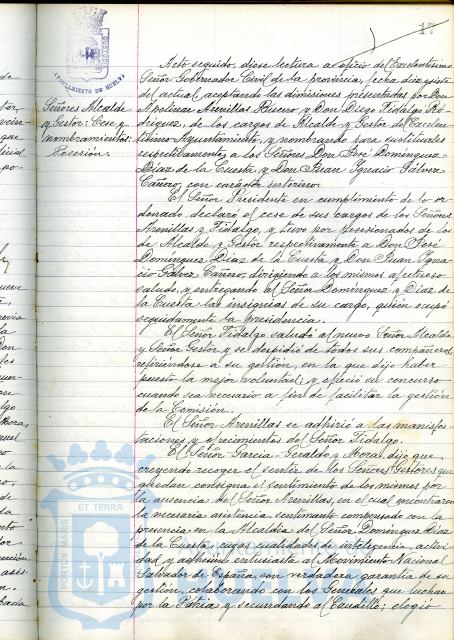 17
AYUNTAMIENTO DE HUELVA
Señores Alcalde
y Gestor: Cese y
nombramientos:
Posesión.
Acto seguido, diose lectura al oficio del Excelentísimo
Señor Gobernador Civil de la provincia, fecha diez y siete
del actual, aceptando las dimisiones presentadas por Don
Apolinar Arenillas Bueno y Don Diego Fidalgo Ro-
dríguez, de los cargos de Alcalde y Gestor del Excelen-
tísimo Ayuntamiento, y nombrando para sustituirles
respectivamente, a los Señores Don José Domínguez
Díaz de la Cuesta y Don Juan Ignacio Gálvez
Cañero, con carácter interino.
El Señor Presidente en cumplimiento de lo or-
denado declaró el cese de sus cargos de los Señores
Arenillas y Fidalgo, y tuvo por posesionados de los
de Alcalde y Gestor respectivamente a Don José
Domínguez Díaz de la Cuesta y Don Juan Igna-
cio Gálvez Cañero, dirigiendo a los mismos afectuoso
saludo, y entregando al Señor Domínguez y Díaz de
la Cuesta las insignias de su cargo, quién ocupó
seguidamente la presidencia.
El Señor Fidalgo saludó al nuevo Señor Alcalde
y Señor Gestor y se despidió de todos sus compañeros,
refiriéndose a su gestión, en la que dijo haber
puesto la mejor voluntad; y ofreció su concurso
cuando sea necesario a fin de facilitar la gestión
de la Comisión.
El Señor Arenillas se adhirió a las manifes-
taciones y ofrecimientos del Señor Fidalgo.
El Señor García-Geraldo y Moral, dijo que
creyendo recoger el sentir de los Señores Gestores que
quedan consigna el sentimiento de los mismos por
la ausencia del Señor Arenillas, en el cual encontraron
la necesaria asistencia, sentimiento compensado con la
presencia en la Alcaldía del Señor Domínguez Díaz
de la Cuesta, cuyas cualidades de inteligencia, activi-
dad y adhesión entusiasta al Movimiento Nacional
Salvador de España, son verdadera garantía de su
gestión, colaborando con los Generales que luchan
por la Patria y secundando al Caudillo; elogió
PORTUS MARIS ET TERRAE